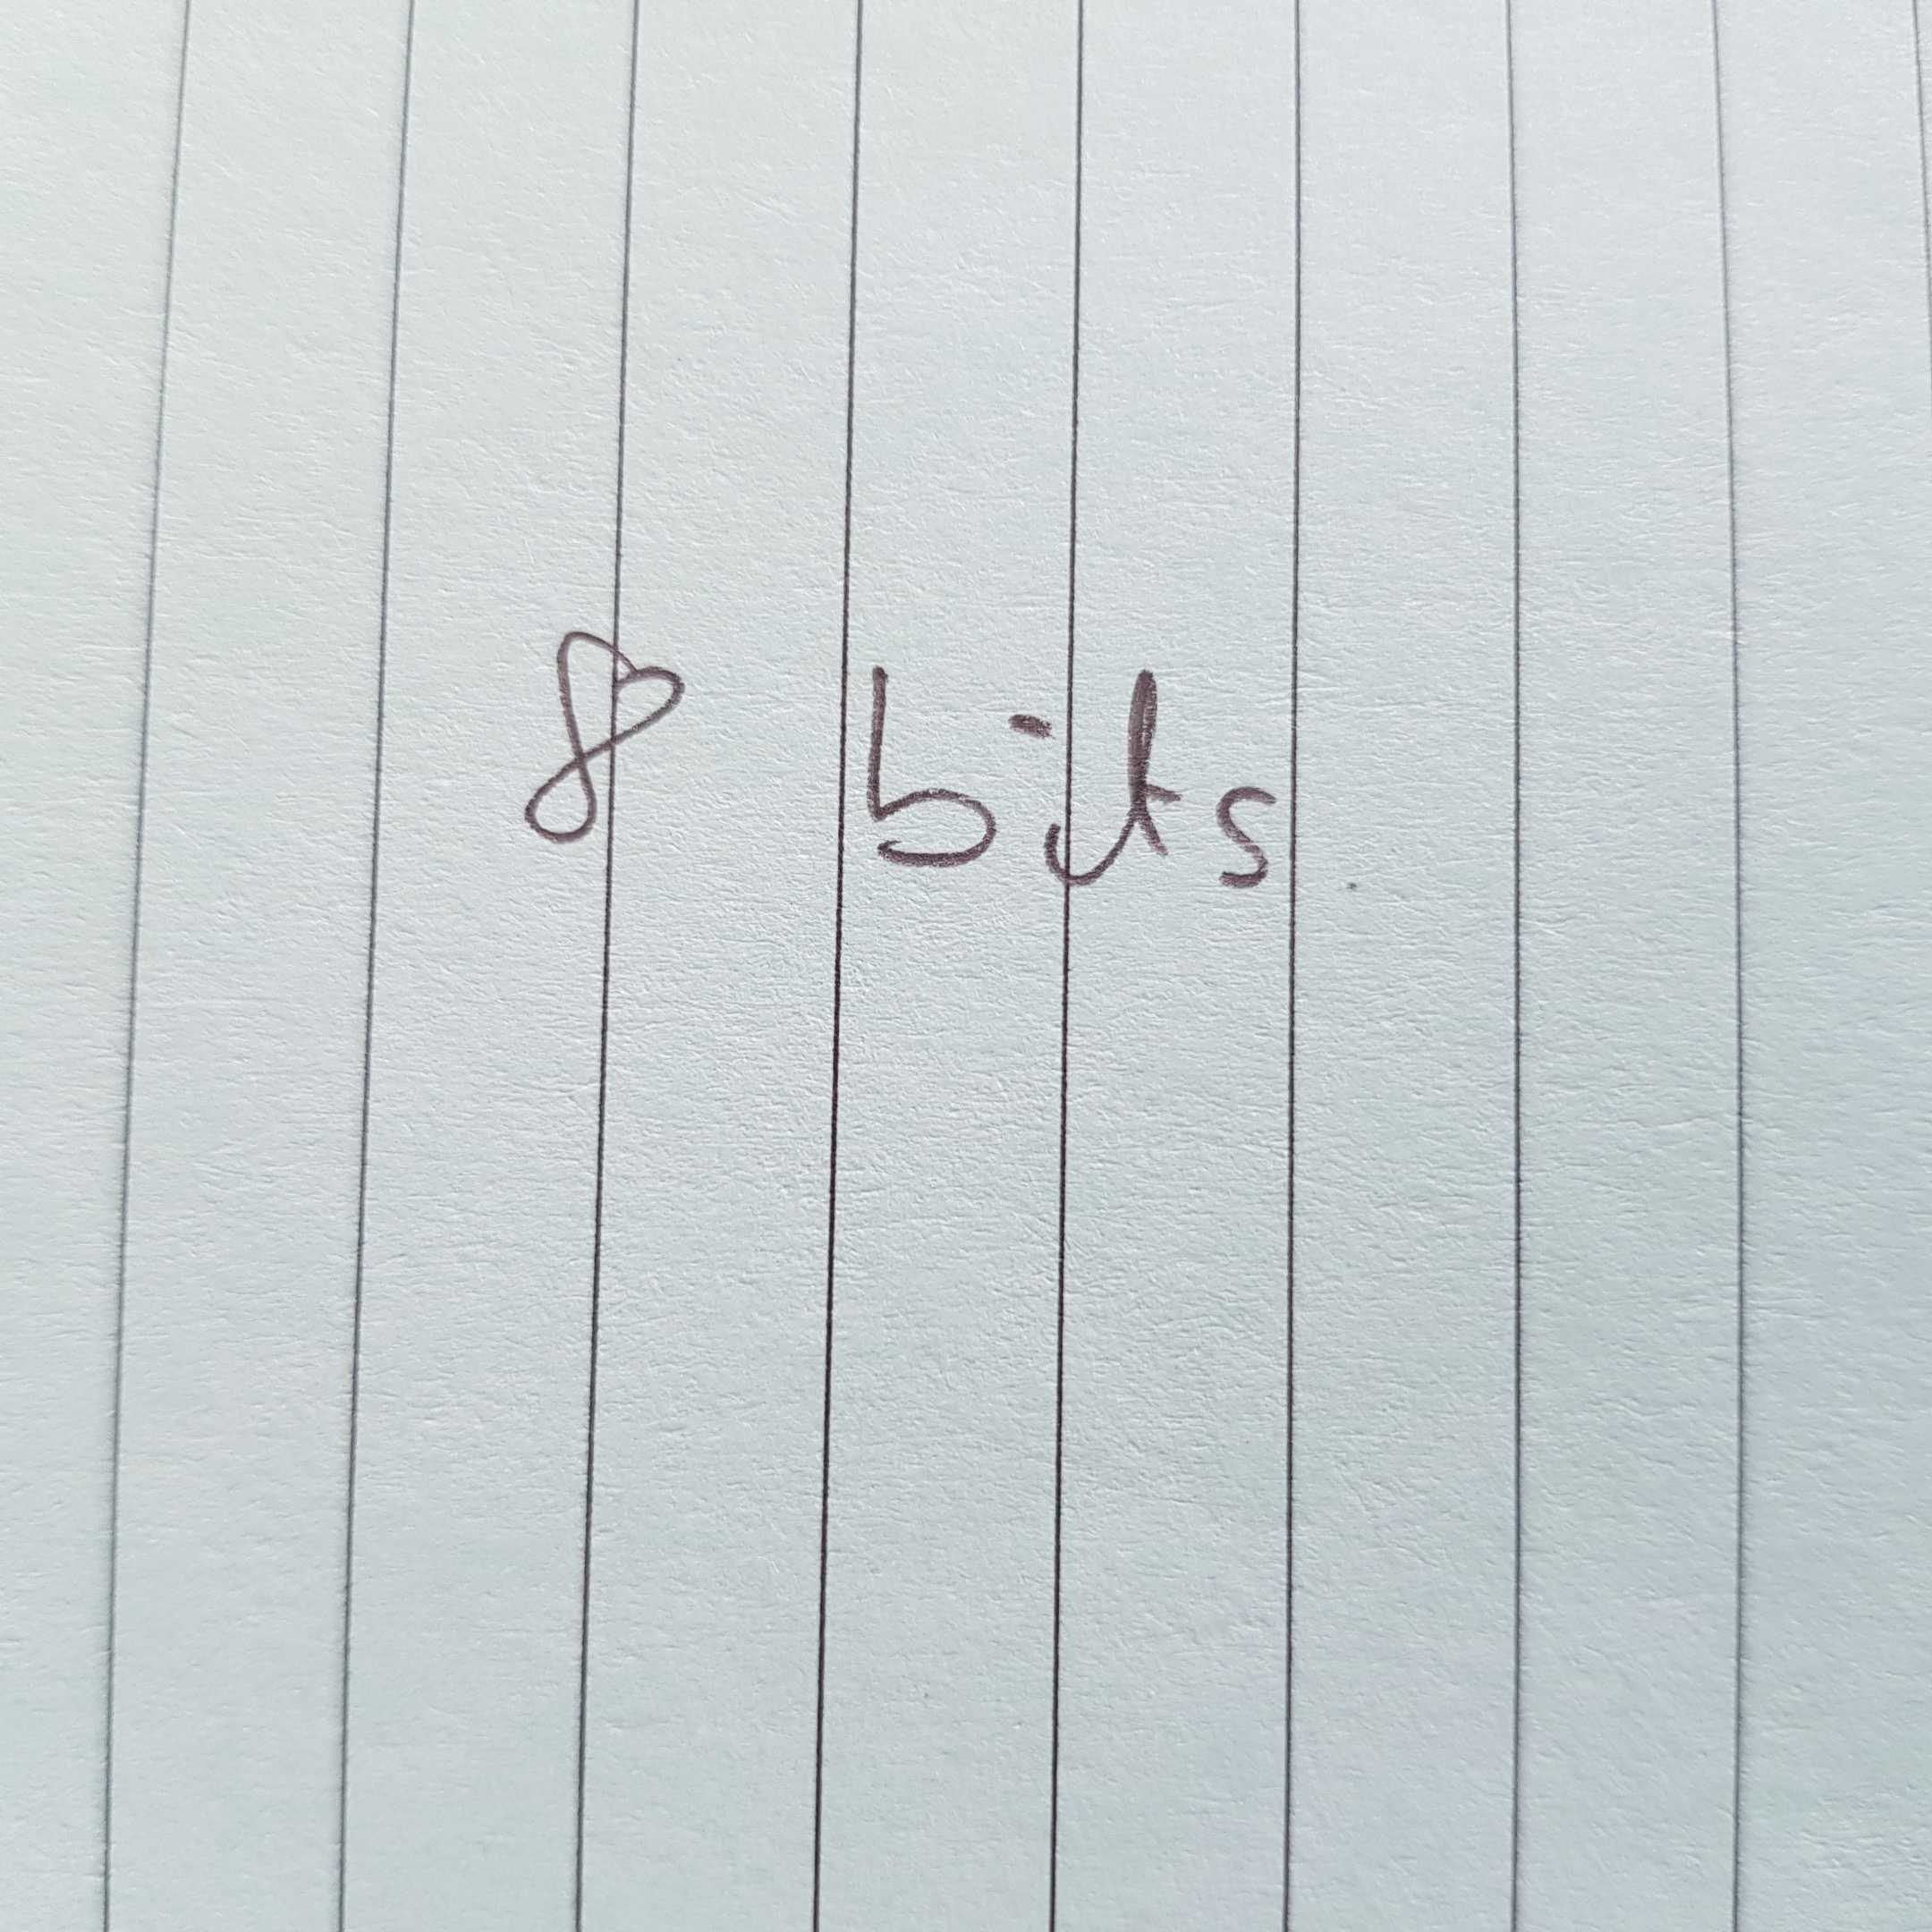 8 bits